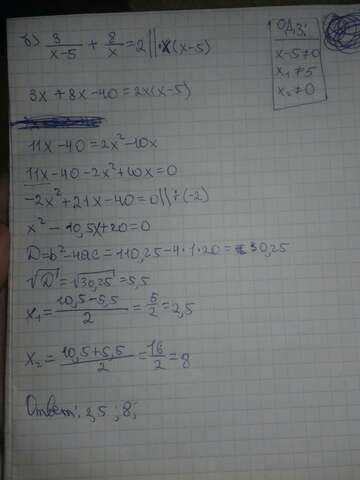 б) 3/(x-5) + 8/x = 2 || ·x(x-5)
ОДЗ:
x-5≠0
x₁≠5
x₂≠0
3x+8x-40=2x(x-5)
11x-40=2x²-10x
11x-40-2x²+10x=0
-2x²+21x-40=0 || ÷(-2)
x²-10,5x+20=0
D=b²-4ac=110,25-4·1·20=30,25
√D=√30,25=5,5
x₁=(10,5-5,5)/2=5/2=2,5
x₂=(10,5+5,5)/2=16/2=8
Ответ: 2,5; 8;